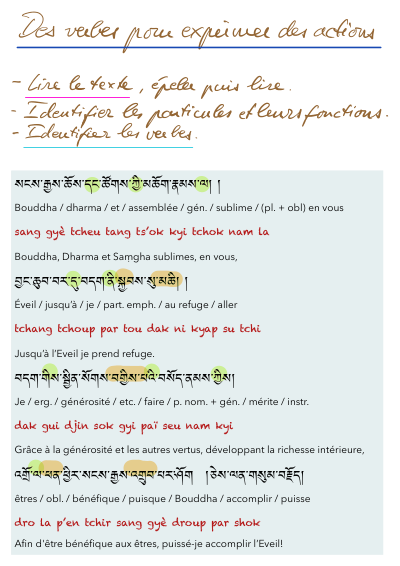 Des verbes pour exprimer des actions
- Lire le texte, épeler puis lire.
- Identifier les particules et leurs fonctions.
- Identifier les verbes.
སངས་རྒྱས་ཆོས་དང་ཚོགས་ཀྱི་མཆོག་རྣམས་ལ། །
Bouddha / dharma / et / assemblée / gén. / sublime / (pl. + obl) en vous
sang gyè tcheu tang ts'ok kyi tchok nam la
Bouddha, Dharma et Saṃgha sublimes, en vous,
བྱང་ཆུབ་བར་དུ་བདག་ནི་སྐྱབས་སུ་མཆི། །
Éveil / jusqu'à / je / part. emph. / au refuge / aller
tchang tchoup par tou dak ni kyap su tchi
Jusqu'à l'Eveil je prend refuge.
བདག་གིས་སྦྱིན་སོགས་བགྱིས་པའི་བསོད་ནམས་ཀྱིས།
Je / erg. / générosité / etc. / faire / p. nom. + gén. / mérite / instr.
dak gui djin sok gyi paï seu nam kyi
Grâce à la générosité et les autres vertus, développant la richesse intérieure,
འགྲོ་ལ་ཕན་ཕྱིར་སངས་རྒྱས་འགྲུབ་པར་ཤོག །ཅེས་ལན་གསུམ་བརྗོད།
êtres / obl. / bénéfique / puisque / Bouddha / accomplir / puisse
dro la p'en tchir sang gyè droup par shok
Afin d'être bénéfique aux êtres, puissé-je accomplir l'Eveil!